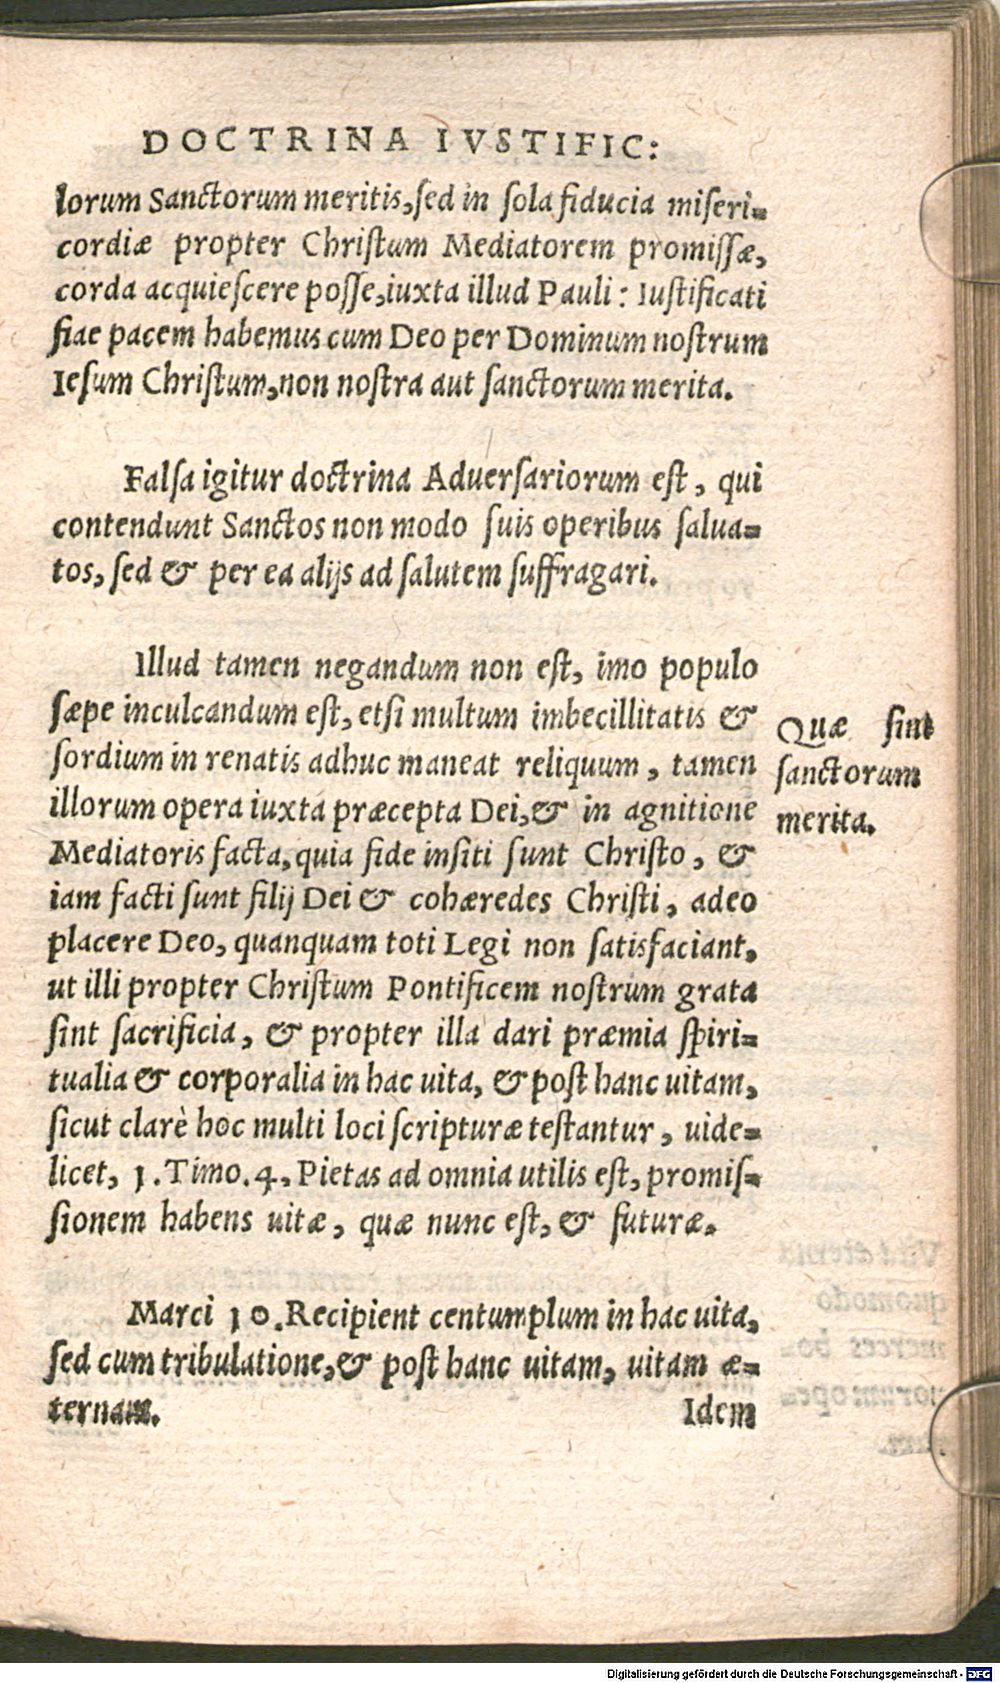 DOCTRINA IVSTIFIC:
lorum Sanctorum meritis, sed in sola fiducia miseri=
cordiæ propter Christum Mediatorem promissæ,
corda acquiescere posse, iuxta illud Pauli: Iustificati
fiae pacem habemus cum Deo per Dominum nostrum
Iesum Christum, non nostra aut sanctorum merita.
Falsa igitur doctrina Aduersariorum est, qui
contendunt Sanctos non modo suis operibus salua=
tos, sed & per ea alijs ad salutem suffragari.
Illud tamen negandum non est, imo populo
sæpe inculcandum est, etsi multum imbecillitatis &
sordium in renatis adhuc maneat reliquum, tamen
illorum opera iuxta præcepta Dei, & in agnitione
Mediatoris facta, quia fide insiti sunt Christo, &
iam facti sunt filij Dei & cohæredes Christi, adeo
placere Deo, quanquam toti Legi non satisfaciant,
ut illi propter Christum Pontificem nostrum grata
sint sacrificia, & propter illa dari præmia spiri=
tualia & corporalia in hac uita, & post hanc uitam,
sicut clarè hoc multi loci scripturæ testantur, uide=
licet, 1. Timo. 4, Pietas ad omnia utilis est, promis=
sionem habens uitæ, quæ nunc est, & futuræ.
Marci 10. Recipient centumplum in hac uita,
sed cum tribulatione, & post hanc uitam, uitam æ=
ternam.
Idem
Quæ sint
sanctorum
merita.
Digitalisierung gefördert durch die Deutsche Forschungsgemeinschaft - DFG